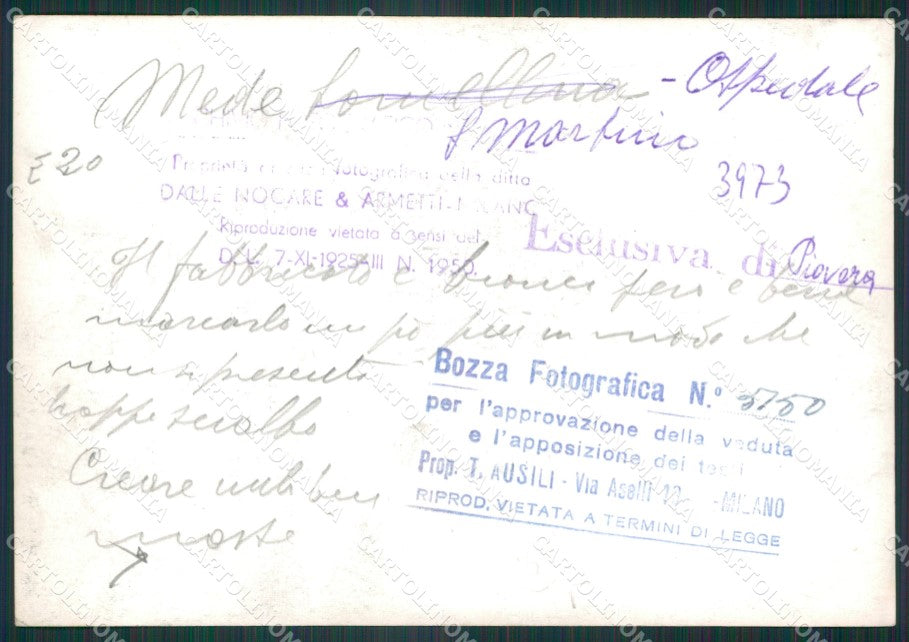 Mede Lomellina - Ospedale
S Martino
£ 20
3973
Proprietà fotografica della ditta
DALLE NOGARE & ARMETTI - MILANO
Riproduzione vietata a sensi del
D.L. 7-XI-1925-III N. 1950
Esclusiva di Piovera
Il fabbricato è bianco però è bene
marcarlo un pò più in modo che
non si presenti
troppo scialbo
Creare nubi ben
mosse
Bozza Fotografica N.° 5150
per l'approvazione della veduta
e l'apposizione dei testi
Prop. T. AUSILI - Via Aselli - MILANO
RIPROD. VIETATA A TERMINI DI LEGGE
CARTOLINOMANIA